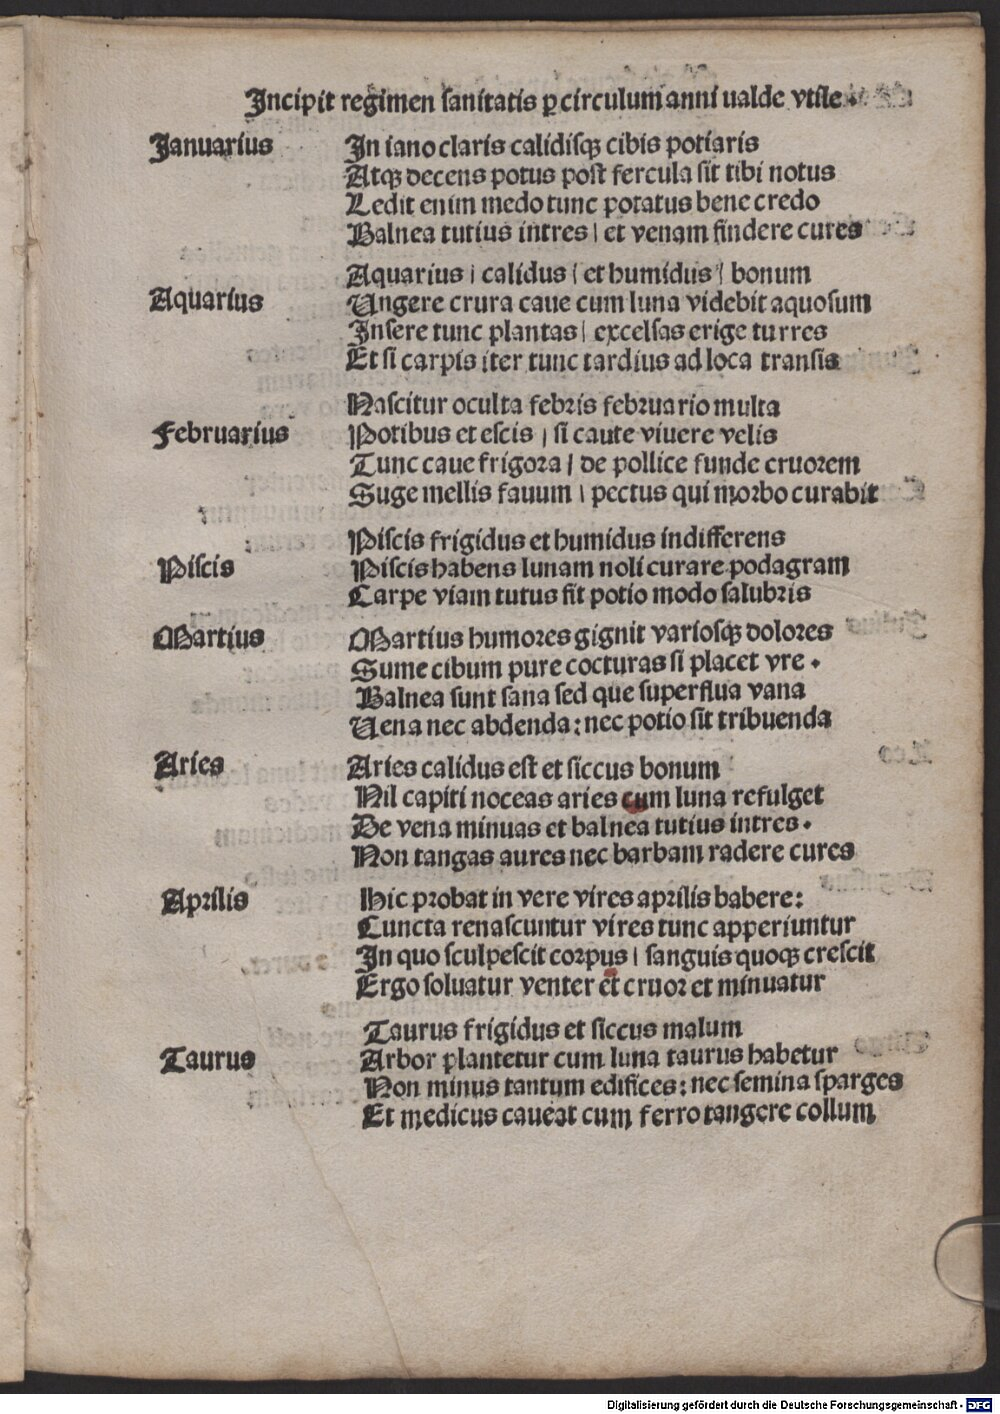 Incipit regimen ſanitatis ꝑ circulum anni ualde vtile.
Januarius In iano claris calidiſqꝫ cibis potiaris
Atqꝫ decens potus poſt fercula ſit tibi notus
Ledit enim medo tunc potatus bene credo
Balnea tutius intres / et venam findere cures
Aquarius / calidus / et humidus / bonum
Aquarius Vngere crura caue cum luna videbit aquoſum
Inſere tunc plantas / excelſas erige turres
Et ſi carpis iter tunc tardius ad loca tranſis
Naſcitur oculta febris februario multa
Februarius Potibus et eſcis / ſi caute viuere velis
Tunc caue frigora / de pollice funde cruorem
Suge mellis fauum / pectus qui morbo curabit
Piſcis frigidus et humidus indifferens
Piſcis Piſcis habens lunam noli curare podagram
Carpe viam tutus fit potio modo ſalubris
Martius Martius humores gignit varioſqꝫ dolores
Sume cibum pure cocturas ſi placet vre.
Balnea ſunt ſana ſed que ſuperflua vana
Vena nec abdenda: nec potio ſit tribuenda
Aries Aries calidus eſt et ſiccus bonum
Nil capiti noceas aries cum luna refulget
De vena minuas et balnea tutius intres.
Non tangas aures nec barbam radere cures
Aprilis Hic probat in vere vires aprilis habere:
Cuncta renaſcuntur vires tunc apperiuntur
In quo ſculpeſcit corpus / ſanguis quoqꝫ creſcit
Ergo ſoluatur venter et cruor et minuatur
Taurus frigidus et ſiccus malum
Taurus Arbor plantetur cum luna taurus habetur
Non minus tantum edifices: nec ſemina ſparges
Et medicus caueat cum ferro tangere collum
Digitalisierung gefördert durch die Deutsche Forschungsgemeinschaft - DFG